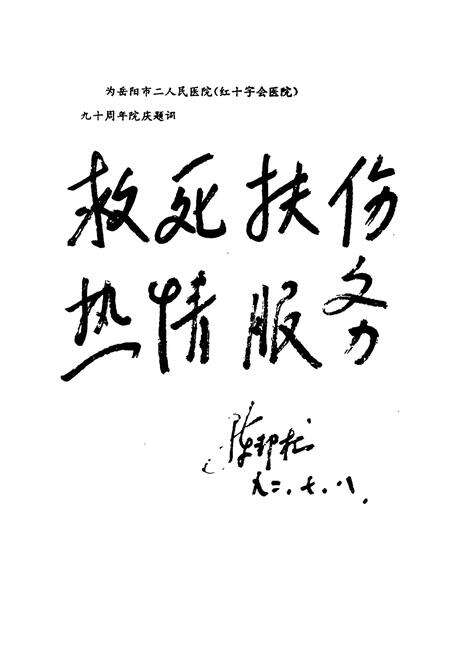 为岳阳市二人民医院(红十字会医院)
九十周年院庆题词
救死扶伤
热情服务
陈邦柱
九二.七.八.